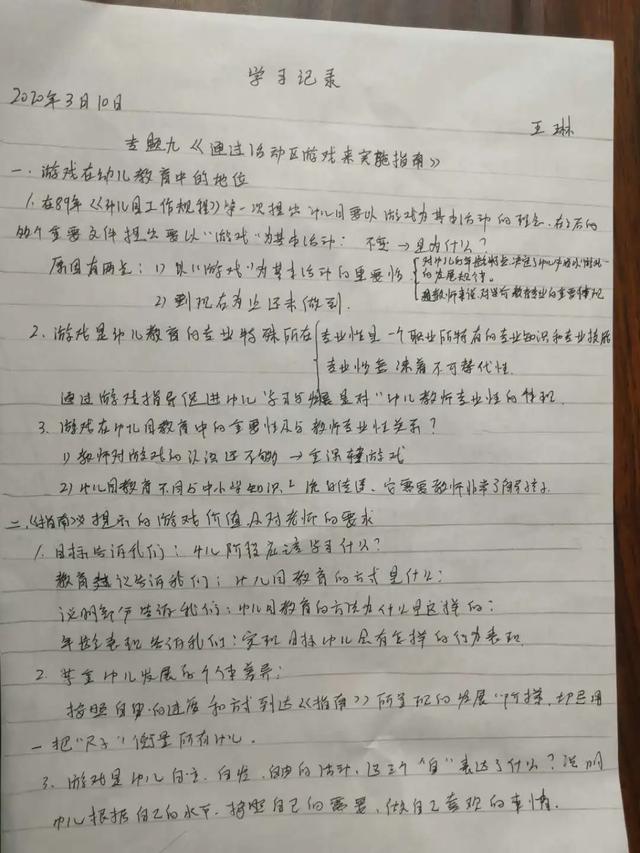 学习记录
2020年3月10日
王琳
专题九《通过活动区游戏来实施指南》
一.游戏在幼儿教育中的地位
1.在89年《幼儿园工作规程》第一次提出幼儿园要以游戏为基本活动的理念.在之后的
的个重要文件提出要以"游戏"为基本活动: 不变→是为什么?
原因有两点: 1)以"游戏"为基本活动的重要性
的发展规律。
2)到现在为止还未做到.
2.游戏是幼儿教育的专业特殊所在 专业性是一个职业所特有的专业知识和专业技能
专业性意味着不可替代性.
通过游戏指导促进幼儿学习与发展是对"幼儿教师专业性的体现.
3.游戏在幼儿园教育中的重要性及与教师专业性关系?
1)教师对游戏的认识还不够→会误解游戏
2)幼儿园教育不同与中小学知识上
二.《指南》提示的游戏价值及对老师的要求
1.目标告诉我们:幼儿阶段应该学习什么?
教育建议告诉我们:幼儿园教育的方式是什么;
说明部分告诉我们:幼儿园教育的方法为什么是这样的;
年龄表现告诉我们:实现目标幼儿会有怎样的行为表现
2.尊重幼儿发展的个体差异;
按照自身的速度和方式到达《指南》所呈现的发展"阶梯,切忌用
一把"尺子"衡量所有幼儿.
3.游戏是幼儿自主.自发.自由的活动,这三个"自"表达了什么?说明
幼儿根据自己的水平.按照自己的需要,做自己喜欢的事情.